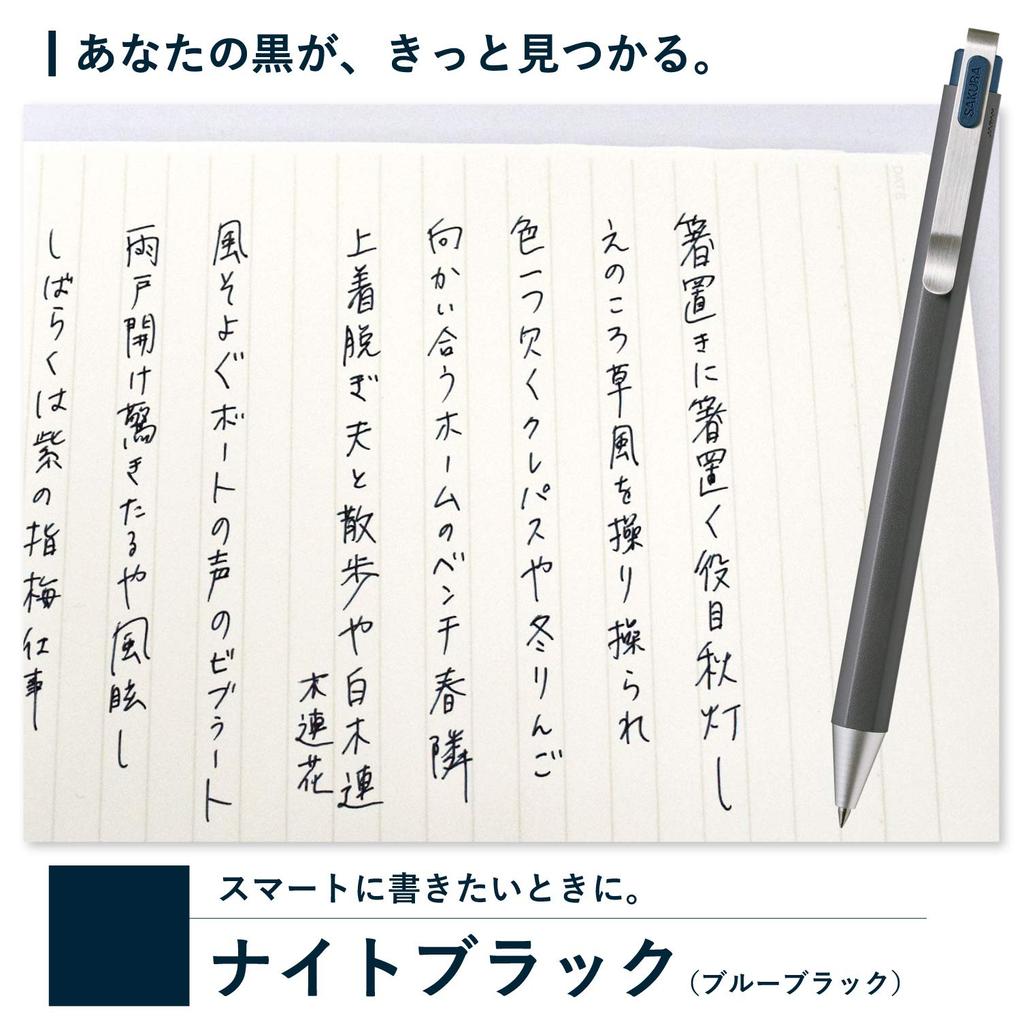 あなたの黒が、きっと見つかる。
SAKURA
DATE
箸置きに箸置く役目秋灯し
えのころ草風を操り操られ
色一つ欠くクレパスや冬りんご
向かい合うホームのベンチ春隣
上着脱ぎ夫と散歩や白木連
木連花
風そよぐボートの声のビブラート
雨戸開け驚きたるや風眩し
しばらくは紫の指梅仕事
スマートに書きたいときに。
ナイトブラック(ブルーブラック)